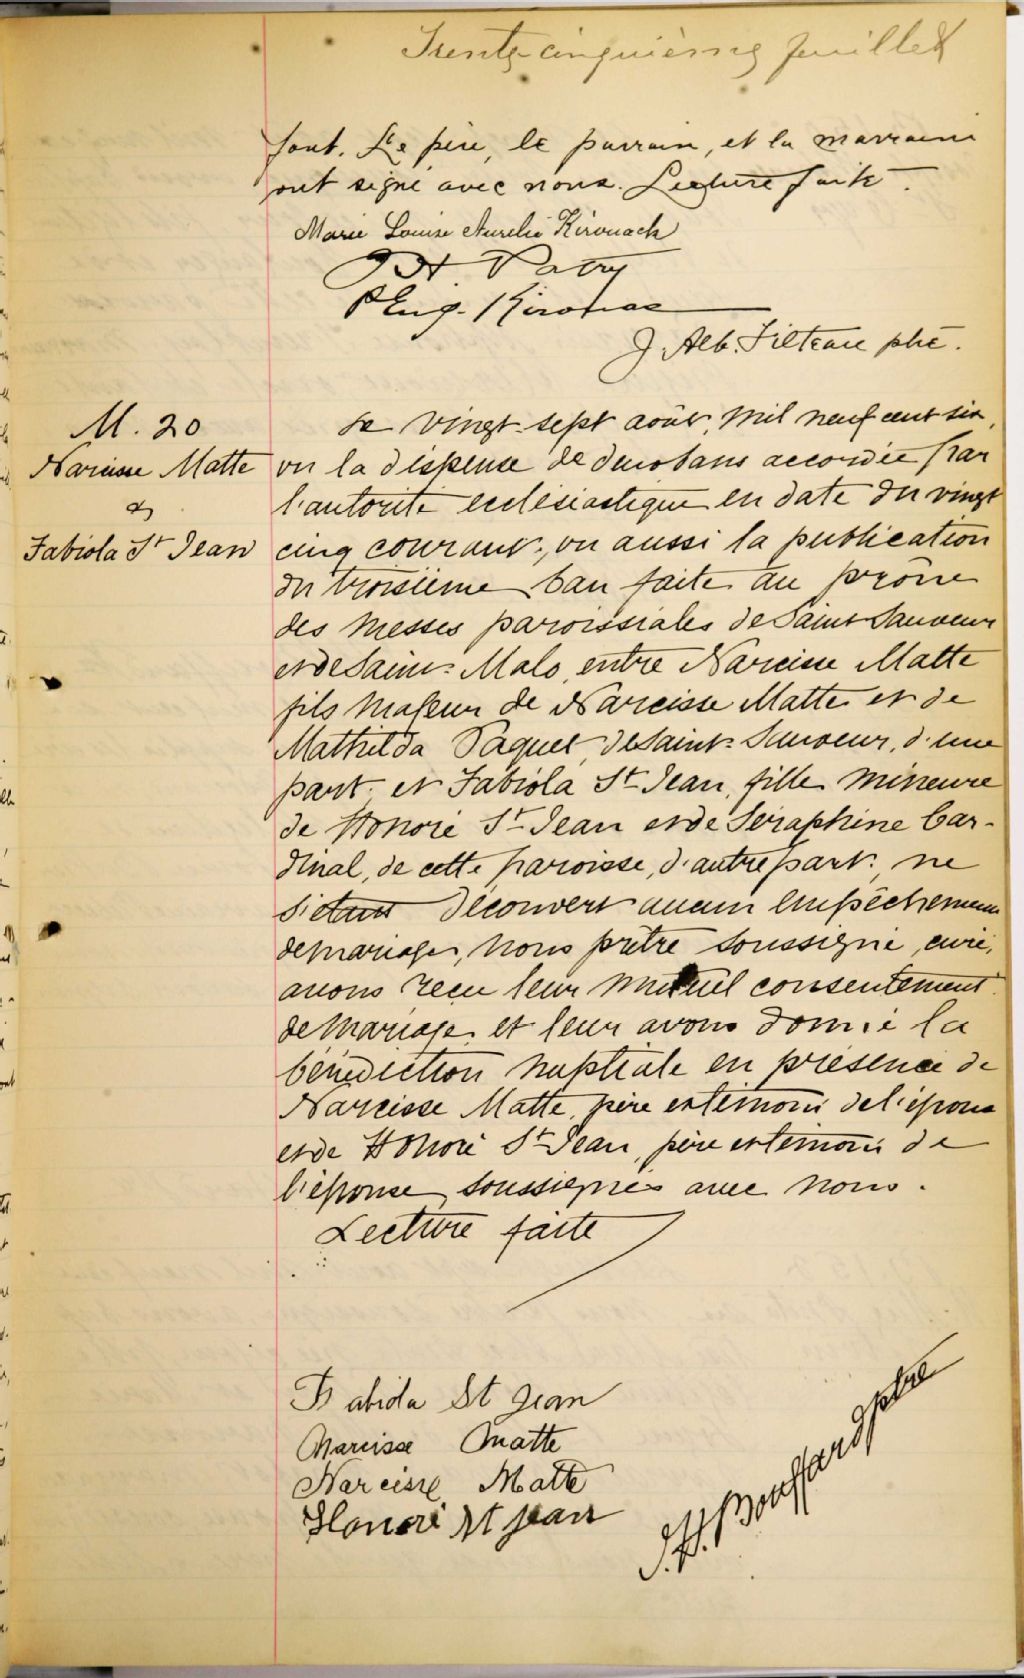 Trente-cinquième feuillet
font. Le père, le parrain, et la marraine
ont signé avec nous. Lecture faite.
Marie Louise Aurelie Kirouack
J H Patry
P Eug. Kirouac
J. Alb. Filteau ptre.
M. 20
Narcisse Matte
&
Fabiola St Jean
Le vingt-sept août, mil neuf cent six,
vu la dispense de deux bans accordée par
l'autorité ecclésiastique en date du vingt
cinq courant, vu aussi la publication
du troisième ban faite au prône
des messes paroissiales de Saint Sauveur
et de Saint-Malo, entre Narcisse Matte
fils majeur de Narcisse Matte et de
Mathilda Paquet, de Saint-Sauveur, d'une
part, et Fabiola St Jean, fille mineure
de Honoré St Jean et de Séraphine Car-
dinal, de cette paroisse, d'autre part, ne
s'étant découvert aucun empêchement
de mariage, nous prêtre soussigné, curé,
avons reçu leur mutuel consentement
de mariage et leur avons donné la
bénédiction nuptiale en présence de
Narcisse Matte, père et témoin de l'époux
et de Honoré St Jean, père et témoin de
l'épouse, soussignés avec nous.
Lecture faite
Fabiola St Jean
Narcisse Matte
Narcisse Matte
Honoré St Jean
J. H. Bouffard ptre